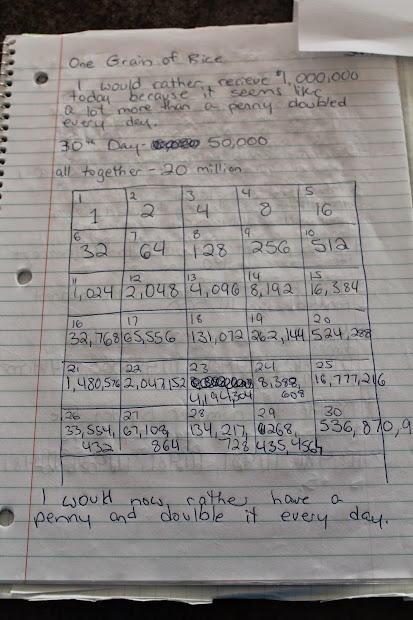 One Grain of Rice
I would rather recieve $1,000,000
today because it seems like
a lot more than a penny doubled
every day.
30th Day- 50,000
all together - 20 million
1 2 3 4 5
1 2 4 8 16
6 7 8 9 10
32 64 128 256 512
11 12 13 14 15
1,024 2,048 4,096 8,192 16,384
16 17 18 19 20
32,768 65,556 131,072 262,144 524,288
21 22 23 24 25
1,480,576 2,047,152 4,194,304 8,388,608 16,777,216
26 27 28 29 30
33,554,432 67,108,864 134,217,728 268,435,456 536,870,9
I would now rather have a
penny and double it every day.